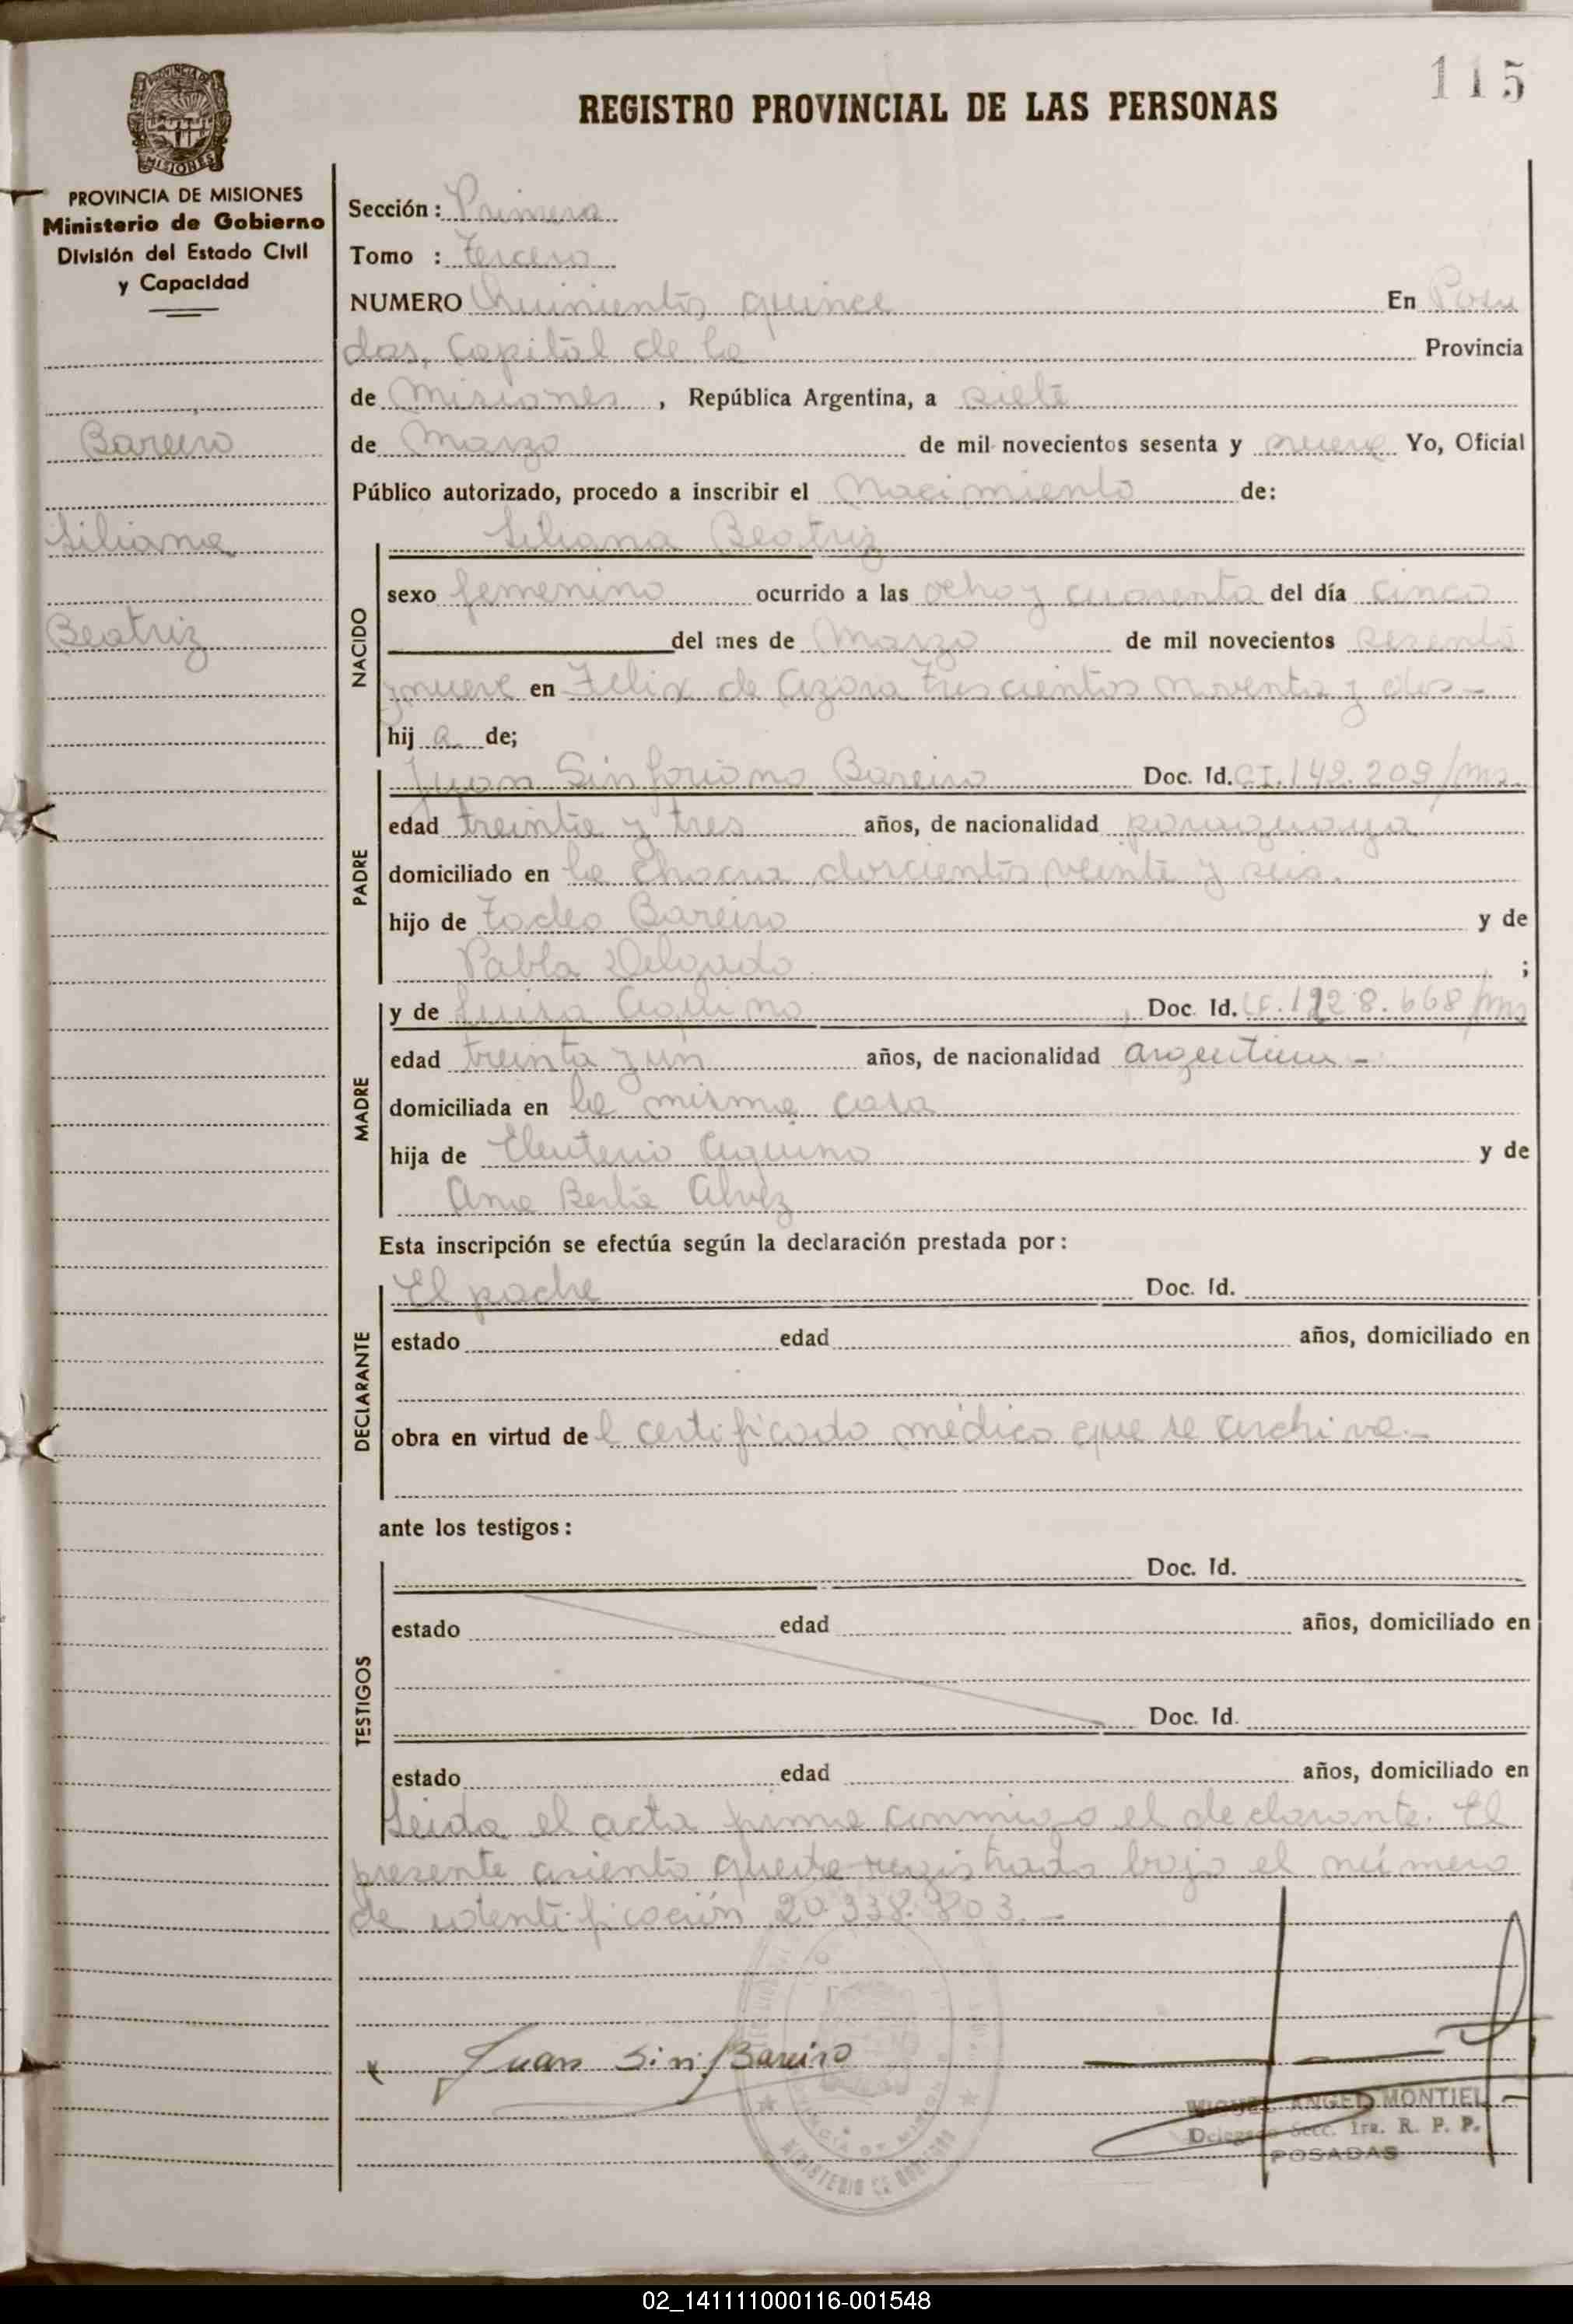 115
REGISTRO PROVINCIAL DE LAS PERSONAS
PROVINCIA DE MISIONES
Ministerio de Gobierno
División del Estado Civil
y Capacidad
Bareiro
Liliana
Beatriz
Sección: Primera
Tomo : Tercero
NUMERO Quinientos quince En Posa
das, Capital de la Provincia
de Misiones, República Argentina, a siete
de Marzo de mil novecientos sesenta y nueve Yo, Oficial
Público autorizado, procedo a inscribir el Nacimiento de:
NACIDO
Liliana Beatriz
sexo femenino ocurrido a las ocho y cuarenta del día cinco
del mes de Marzo de mil novecientos sesenta
y nueve en Felix de Azara trescientos noventa y dos -
hij a de;
PADRE
Juan Sinforiano Bareiro Doc. Id. CI. 142.209/Ms.
edad treinta y tres años, de nacionalidad paraguaya
domiciliado en la Chacra doscientos veinte y seis.
hijo de Tadeo Bareiro y de
Pabla Delgado ;
MADRE
y de Luisa Aquino, Doc. Id.
edad treinta y un años, de nacionalidad argentina -
domiciliada en la misma casa
hija de Eleuterio Aquino y de
Ana Berta Alvez
Esta inscripción se efectúa según la declaración prestada por:
DECLARANTE
El padre Doc. Id.
estado edad años, domiciliado en
obra en virtud de l certificado médico que se archiva.-
ante los testigos:
TESTIGOS
Doc. Id.
estado edad años, domiciliado en
Doc. Id.
estado edad años, domiciliado en
Leida el acta firma conmigo el declarante. El
presente asiento queda registrado bajo el número
de identificación 20.338.803. -
Juan Sinf Bareiro
MIGUEL ANGEL MONTIEL
Delegado Secc. 1ra. R. P. P.
POSADAS
MINISTERIO DE GOBIERNO
02_141111000116-001548